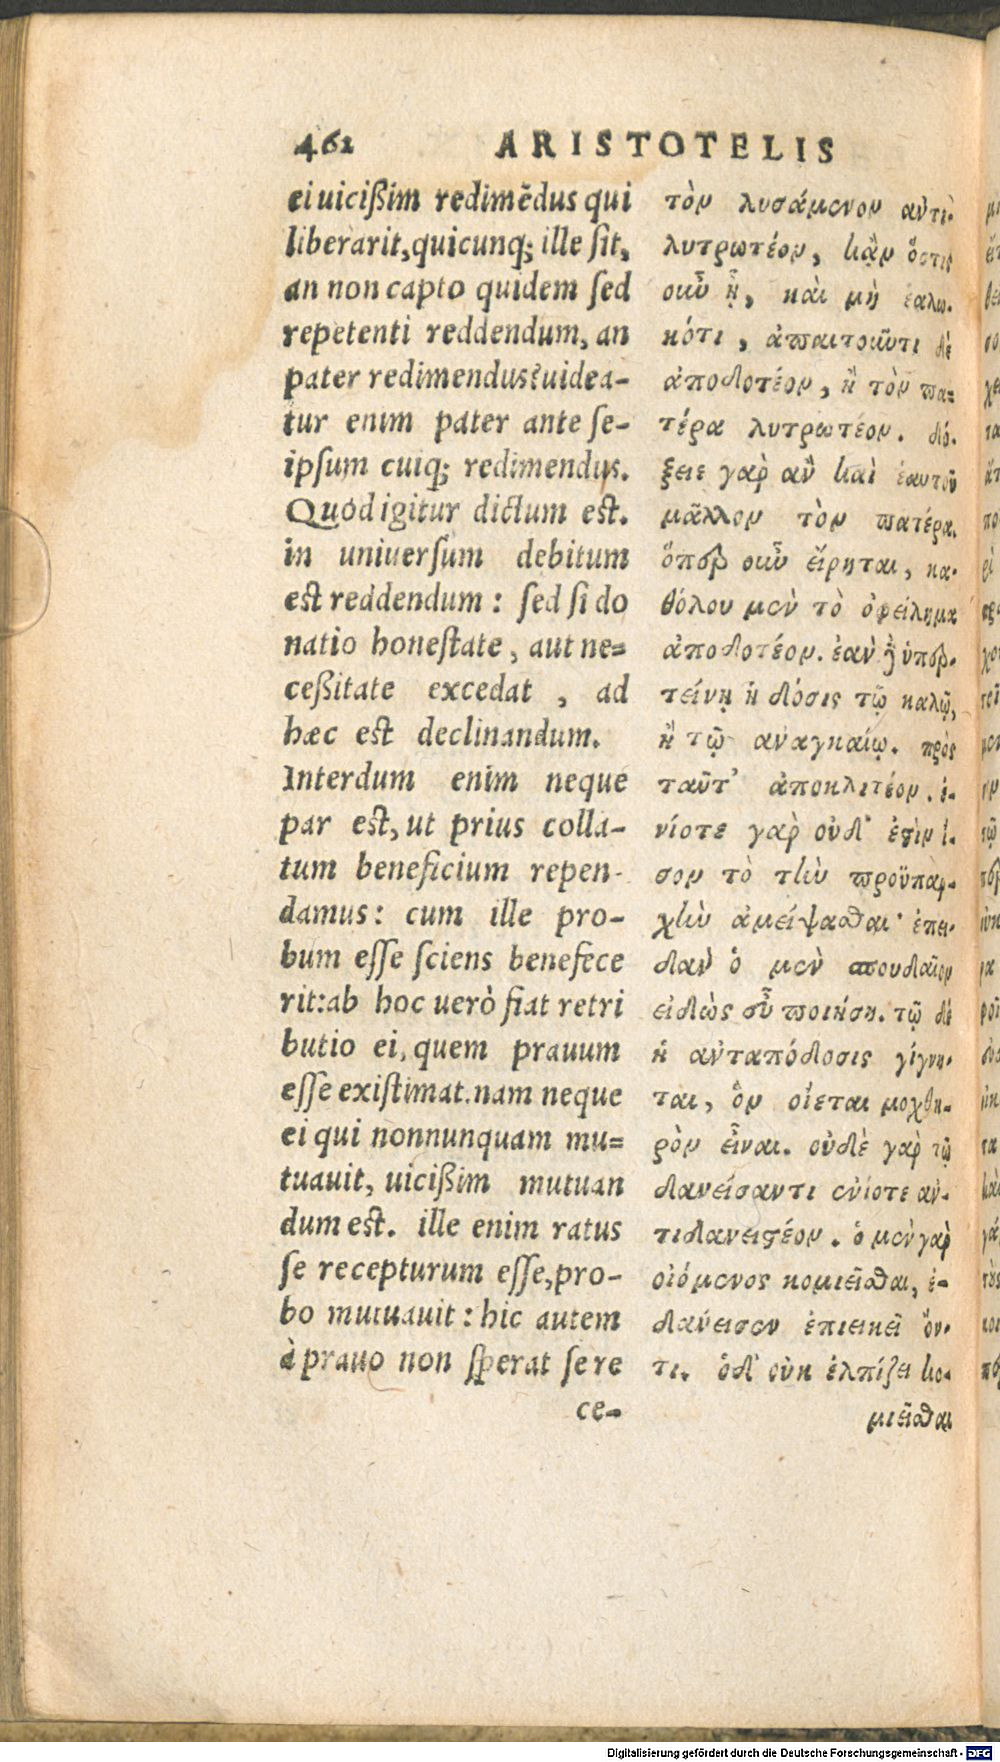 462 ARISTOTELIS
ei uicißim redimẽdus qui
liberarit, quicunq; ille ſit,
an non capto quidem ſed
repetenti reddendum, an
pater redimendus? uidea-
tur enim pater ante ſe-
ipſum cuiq; redimendus.
Quod igitur dictum est.
in uniuerſum debitum
est reddendum: ſed ſi do
natio honeſtate, aut ne=
ceßitate excedat, ad
hæc est declinandum.
Interdum enim neque
par est, ut prius colla-
tum beneficium repen-
damus: cum ille pro-
bum eſſe ſciens benefece
rit: ab hoc uerò fiat retri
butio ei, quem prauum
eſſe exiſtimat. nam neque
ei qui nonnunquam mu=
tuauit, uicißim mutuan
dum est. ille enim ratus
ſe recepturum eſſe, pro-
bo mutuauit: hic autem
à prauo non ſperat ſe re
ce-
τὸν λυσάμενον ἀντι-
λυτρωτέον, κἂν ὅστις
οὖν ᾖ, καὶ μὴ ἑαλω-
κότι, ἀπαιτοῦντι δὲ
ἀποδοτέον, ἢ τὸν πα=
τέρα λυτρωτέον. δό-
ξειε γὰρ ἂν καὶ ἑαυτοῦ
μᾶλλον τὸν πατέρα.
ὅπερ οὖν εἴρηται, κα-
θόλου μὲν τὸ ὀφείλημα
ἀποδοτέον. ἐὰν δ' ὑπερ-
τείνῃ ἡ δόσις τῷ καλῷ,
ἢ τῷ ἀναγκαίῳ. πρὸς
ταῦτ' ἀποκλιτέον. ἐ-
νίοτε γὰρ οὐδ' ἐστὶν ἴ-
σον τὸ τὴν προϋπαρ-
χὴν ἀμείψασθαι· ἐπει-
δὰν ὁ μὲν σπουδαῖον
εἰδὼς εὖ ποιήσῃ. τῷ δὲ
ἡ ἀνταπόδοσις γίγνη-
ται, ὃν οἴεται μοχθη-
ρὸν εἶναι. οὐδὲ γὰρ τῷ
δανείσαντι ἐνίοτε ἀν-
τιδανειστέον. ὁ μὲν γὰρ
οἰόμενος κομιεῖσθαι, ἐ-
δάνεισεν ἐπιεικεῖ ὄν-
τι. ὁδ' οὐκ ἐλπίζει κο-
μιεῖσθαι
Digitalisierung gefördert durch die Deutsche Forschungsgemeinschaft - DFG